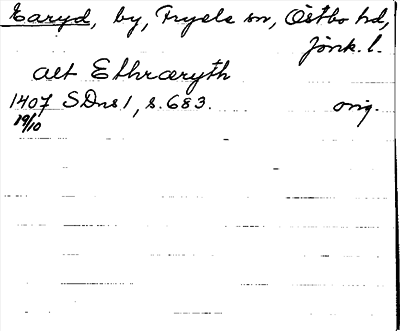 Earyd, by, Fryele sn, Östbo hd,
Jönk. l.
aet Ethræryth
1407 SDns 1, s. 683. orig.
19/10